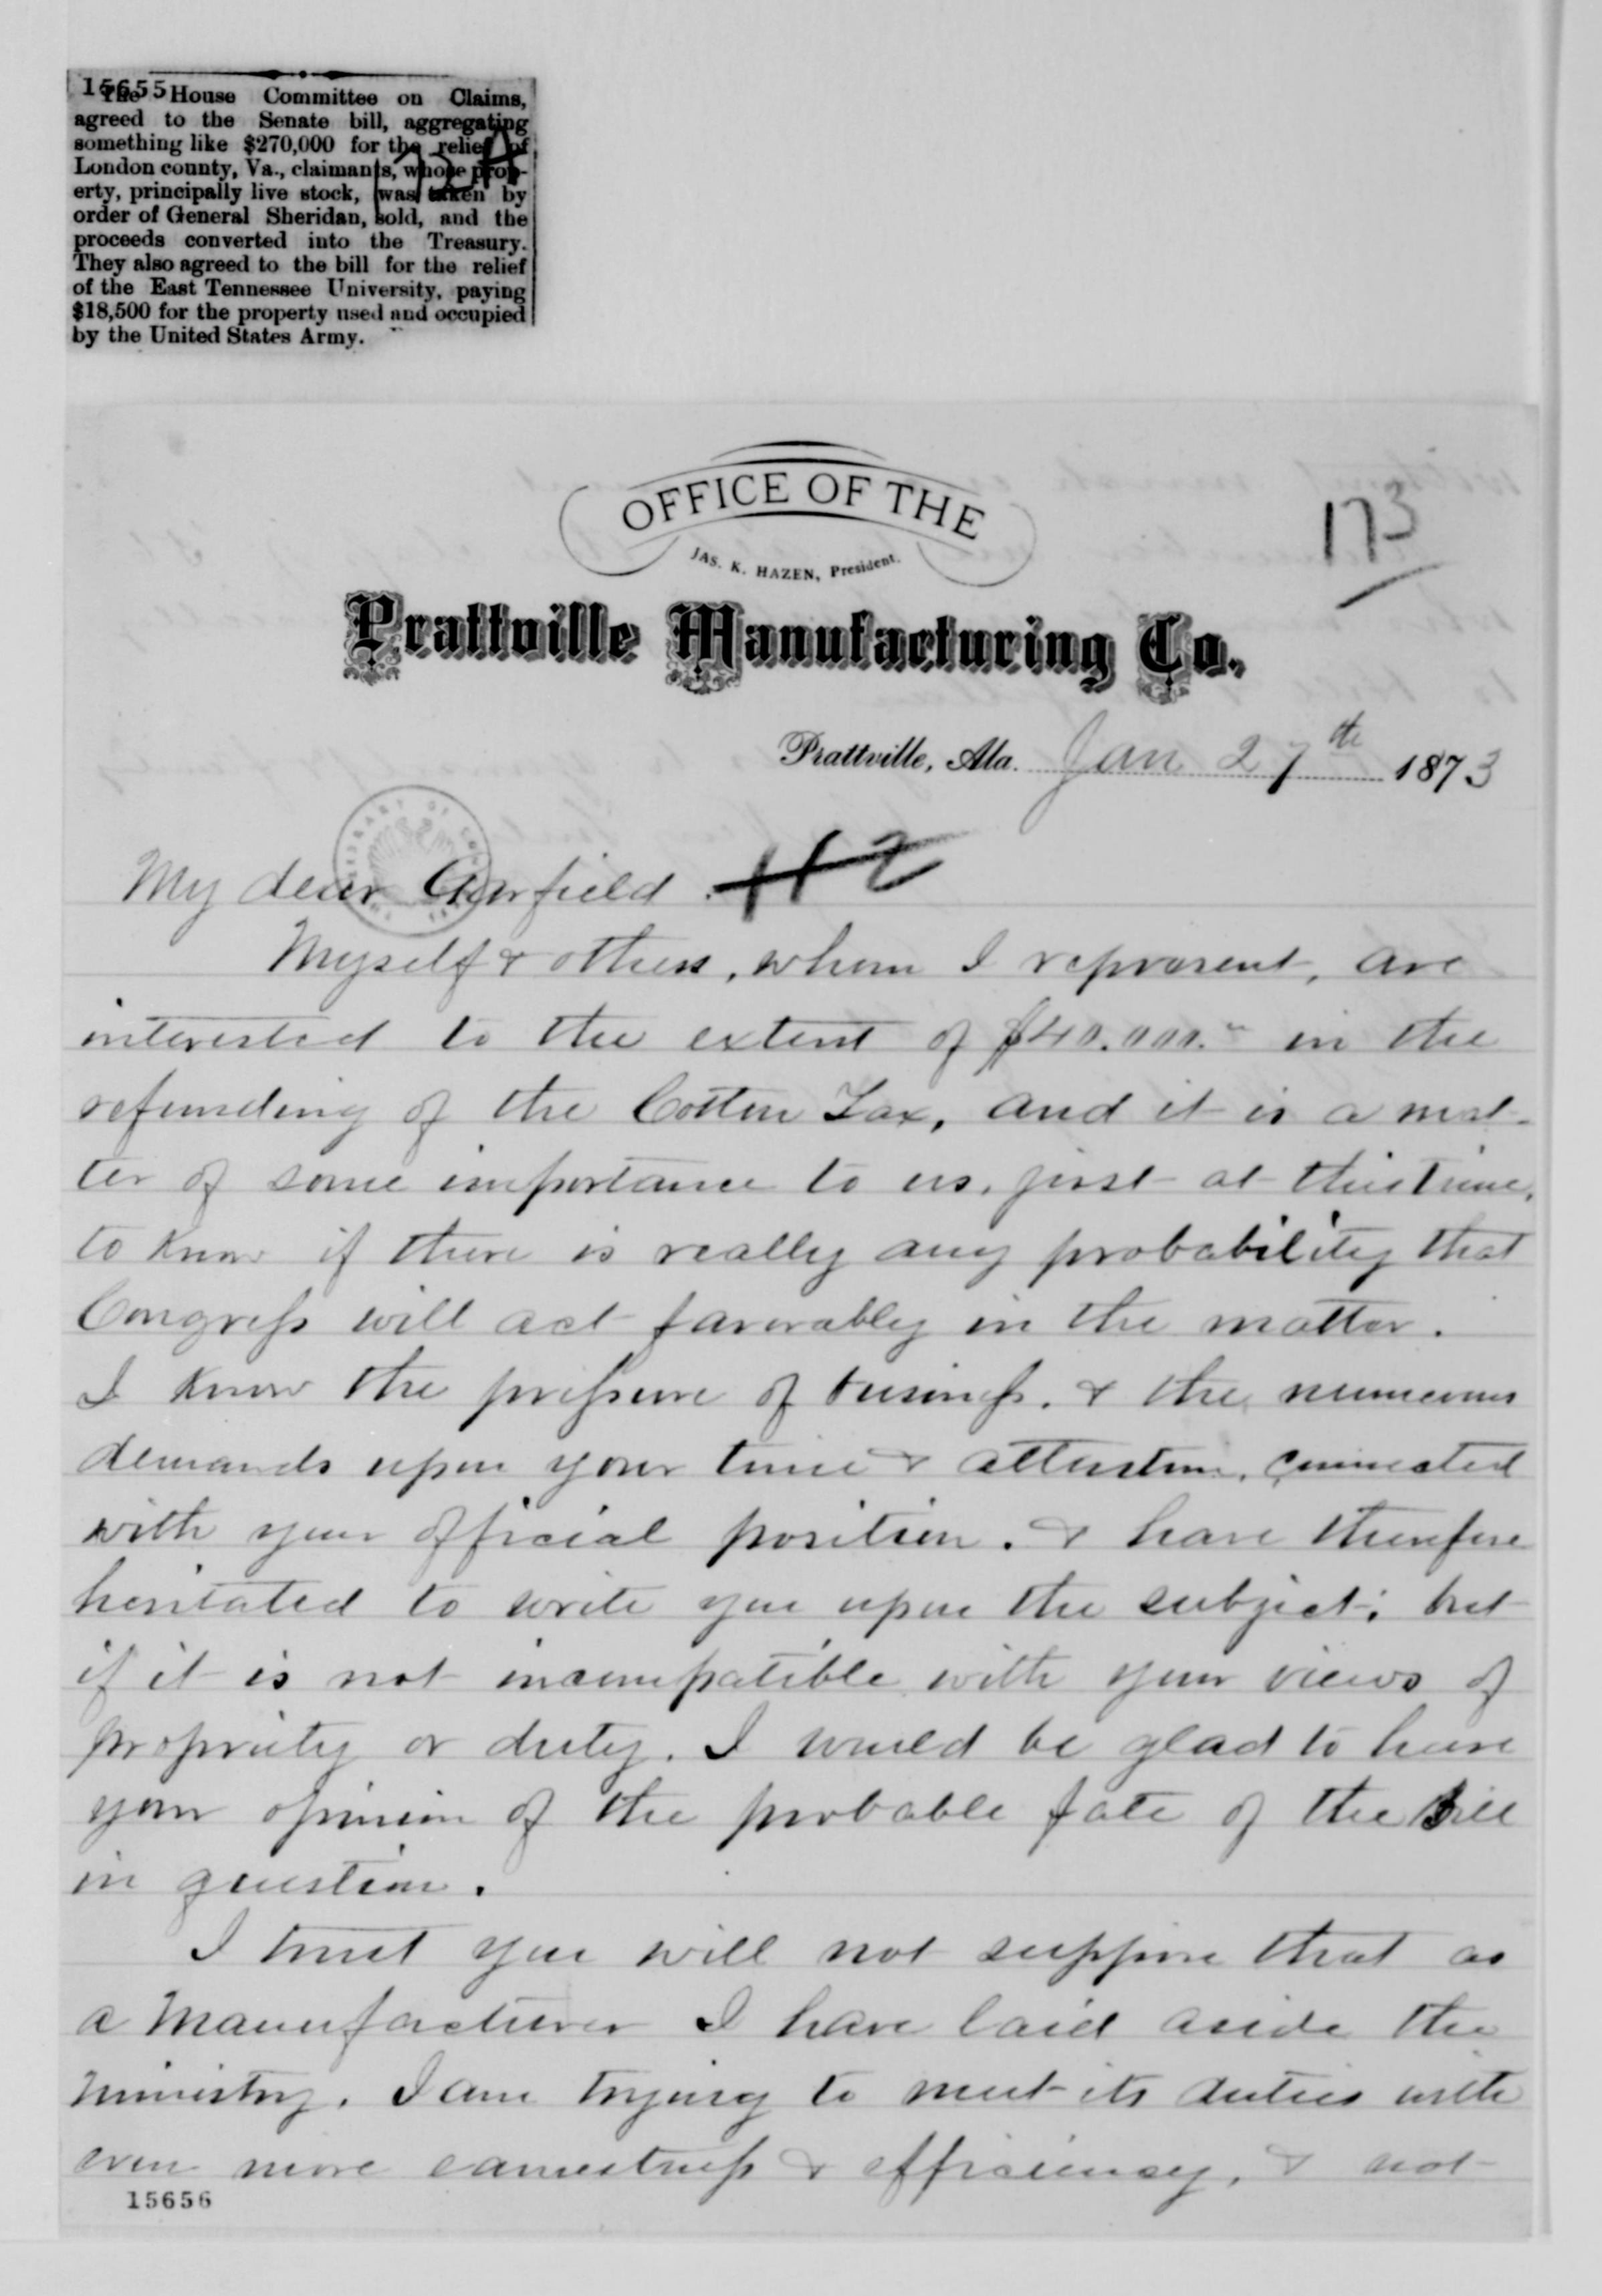 15655
The House Committee on Claims,
agreed to the Senate bill, aggregating
something like $270,000 for the relief of
London county, Va., claimants, whose prop-
erty, principally live stock, was taken by
order of General Sheridan, sold, and the
proceeds converted into the Treasury.
They also agreed to the bill for the relief
of the East Tennessee University, paying
$18,500 for the property used and occupied
by the United States Army.
OFFICE OF THE
173
JAS. K. HAZEN, President.
Prattville Manufacturing Co.
Prattville, Ala. Jan 27th 1873
My dear Garfield.
Myself & others, whom I represent, are
interested to the extent of $40.000. in the
refunding of the Cotton Tax, and it is a mat-
ter of some importance to us, just at this time,
to know if there is really any probability that
Congress will act favorably in the matter.
I know the pressure of business, & the numerous
demands upon your time & attention, connected
with your official position. & have therefore
hesitated to write you upon the subject; but
if it is not incompatible with your views of
propriety or duty. I would be glad to have
your opinion of the probable fate of the Bill
in question.
I trust you will not suppose that as
a Manufacturer I have laid aside the
ministry. I am trying to meet its duties with
even more earnestness & efficiency, & not
15656